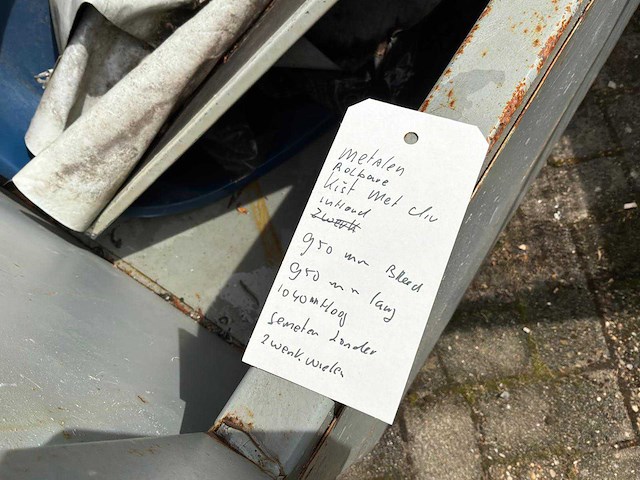 Metalen
Rolbare
Kist met div
inhoud
Zwenk
950 mm Breed
950 mm lang
1040 m Hoog
Gemeten zonder
Zwenk.wielen